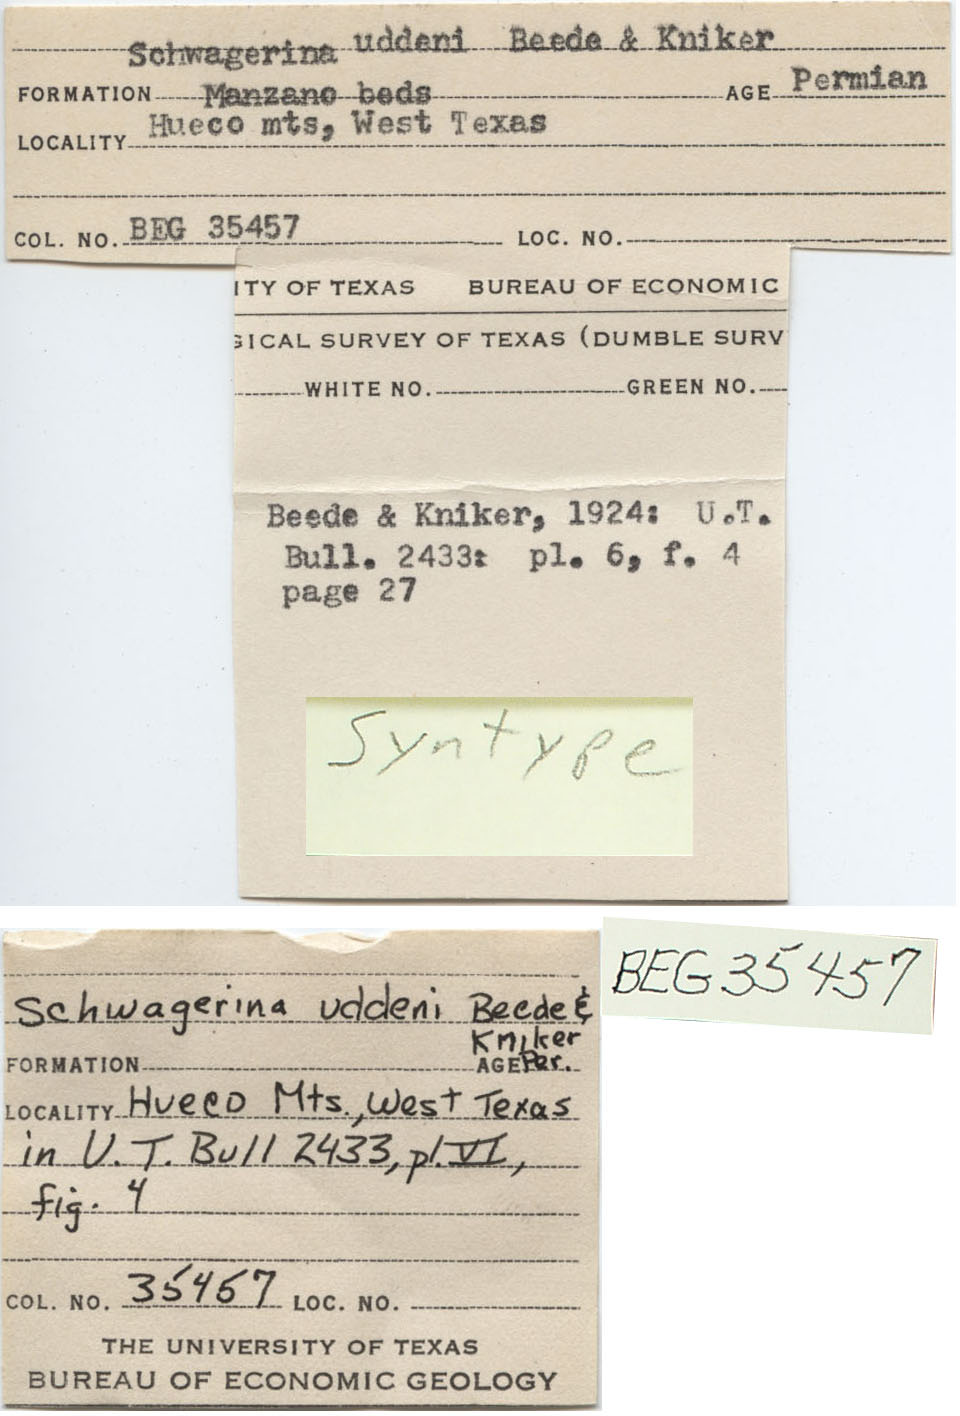 Schwagerina uddeni Beede & Kniker
FORMATION Manzano beds AGE Permian
LOCALITY Hueco mts, West Texas
COL. NO. BEG 35457 LOC. NO.
ITY OF TEXAS BUREAU OF ECONOMIC
GICAL SURVEY OF TEXAS (DUMBLE SURV
WHITE NO. GREEN NO.
Beede & Kniker, 1924: U.T.
Bull. 2433: pl. 6, f. 4
page 27
Syntype
BEG 35457
Schwagerina uddeni Beede &
Kniker
FORMATION AGE Per.
LOCALITY Hueco Mts., West Texas
in U.T. Bull 2433, pl. VI,
fig. 4
COL. NO. 35457 LOC. NO.
THE UNIVERSITY OF TEXAS
BUREAU OF ECONOMIC GEOLOGY